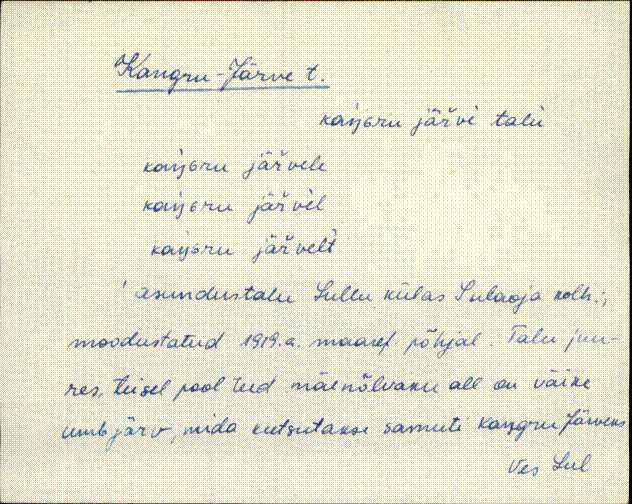 Kangru-Järve t.
kaŋɢru järvi talu
kaŋɢru järvele
kaŋɢru järvel
kaŋɢru järvelt
asundustalu Sullu külas Sulaoja kolh.;
moodustatud 1919.a. maaref. põhjal. Talu juu-
res, teisel pool teed mäenõlvaku all on väike
umbjärv, mida kutsutakse samuti Kangru Järveks
Ves Sul